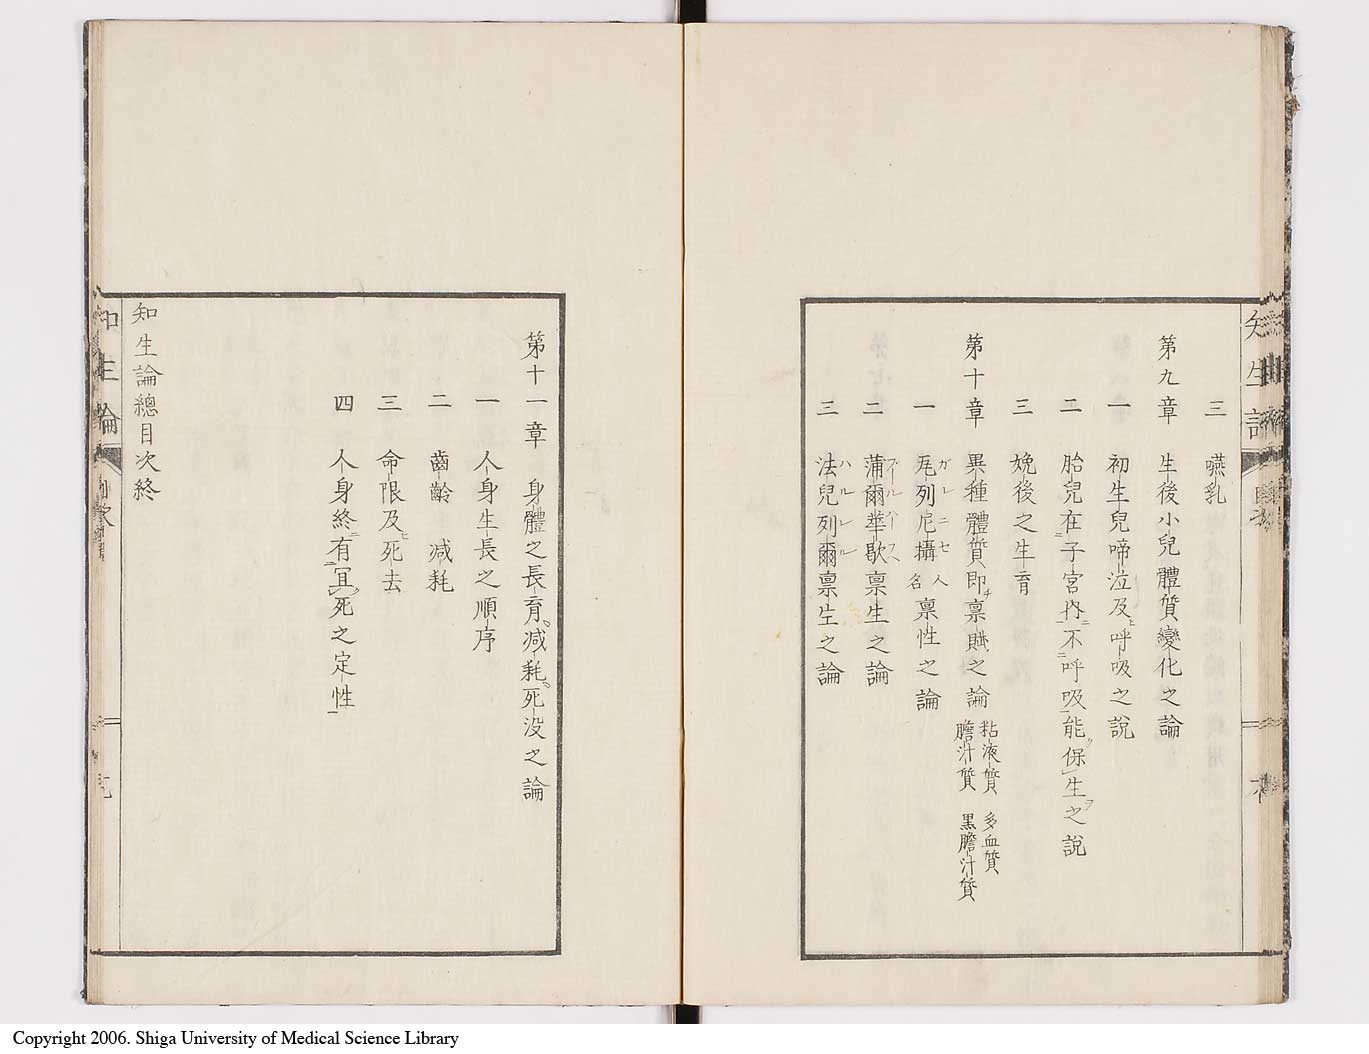 三 嚥乳
第九章 生後小兒體質變化之論
一 初生兒啼泣及ヒ呼吸之説
二 胎兒在子宮内不呼吸能保生之説
三 娩後之生育
第十章 異種體質即チ禀賦之論 粘液質 多血質 膽汁質 黒膽汁質
一 瓦列尼攝人名禀性之論
ガレニセ
二 蒲爾華歇禀生之論
三 法兒列爾禀生之論
ハルレル
第十一章 身體之長育、減耗、死没之論
一 人身生長之順序
二 齒齡減耗
三 命限及ヒ死去
四 人身終有冝死之定性
知生論總目次終
知生論
Copyright 2006. Shiga University of Medical Science Library